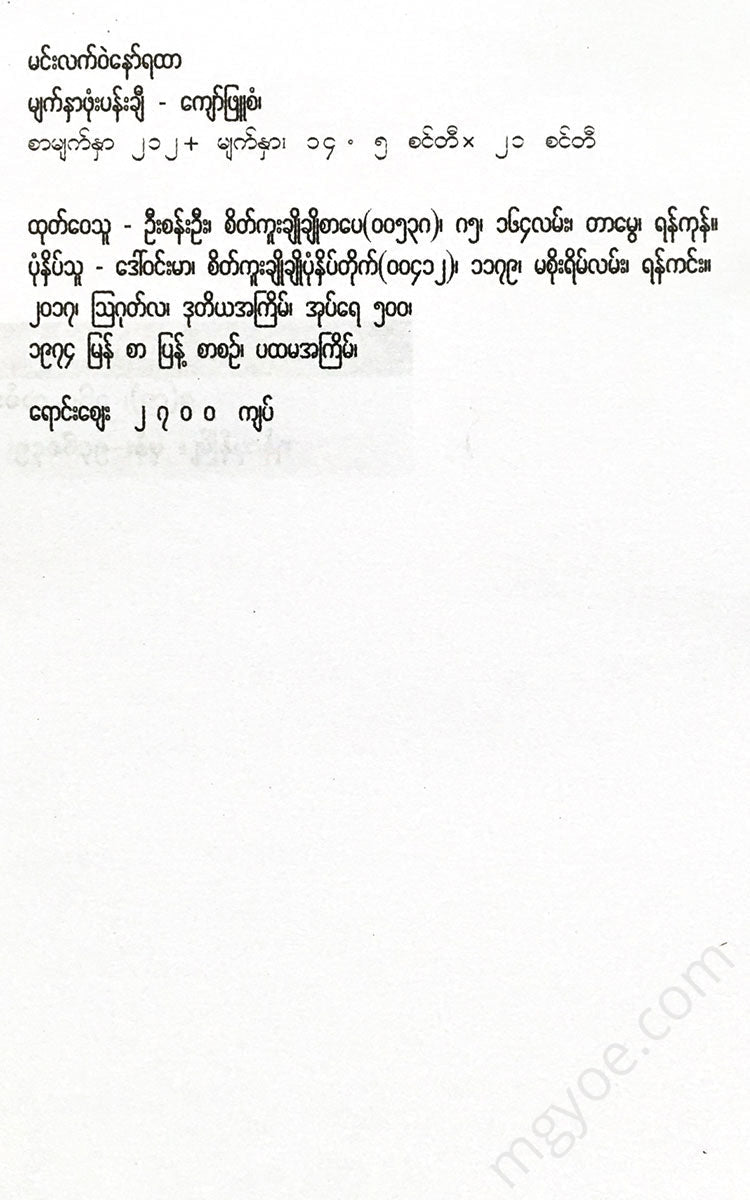 မင်းလက်ဝဲနော်ရထာ
မျက်နှာဖုံးပန်းချီ - ကျော်ဖြူစံ၊
စာမျက်နှာ ၂၁၂+ မျက်နှာ၊ ၁၄ . ၅ စင်တီ× ၂၁ စင်တီ
ထုတ်ဝေသူ - ဦးစန်းဦး၊ စိတ်ကူးချိုချိုစာပေ(၀၀၅၃၈)၊ ဂ၅၊ ၁၆၄လမ်း၊ တာမွေ၊ ရန်ကုန်။
ပုံနှိပ်သူ - ဒေါ်ဝင်းမာ၊ စိတ်ကူးချိုချိုပုံနှိပ်တိုက်(၀၀၄၁၂)၊ ၁၁၇၉၊ မစိုးရိမ်လမ်း၊ ရန်ကင်း။
၂၀၁၇၊ ဩဂုတ်လ၊ ဒုတိယအကြိမ်၊ အုပ်ရေ ၅၀၀၊
၁၉၇၄ မြန် စာ ပြန့် စာစဉ်၊ ပထမအကြိမ်၊
ရောင်းဈေး ၂ ၇ ၀ ၀ ကျပ်
mgyoe.com